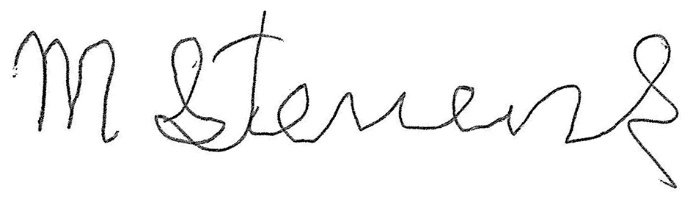 M Stevens